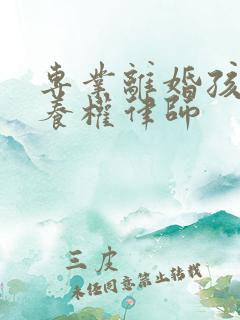 專業離婚孩
養權律師
三皮
未經同意禁止轉載